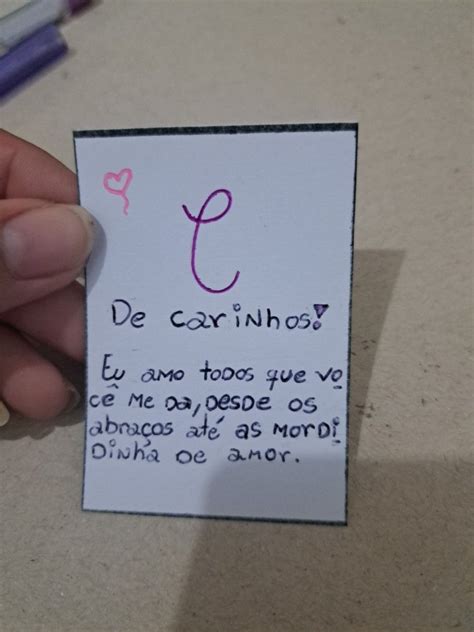 C
De carinhos!
Eu amo todos que vo
cê me da, desde os
abraços até as mordi
dinha de amor.